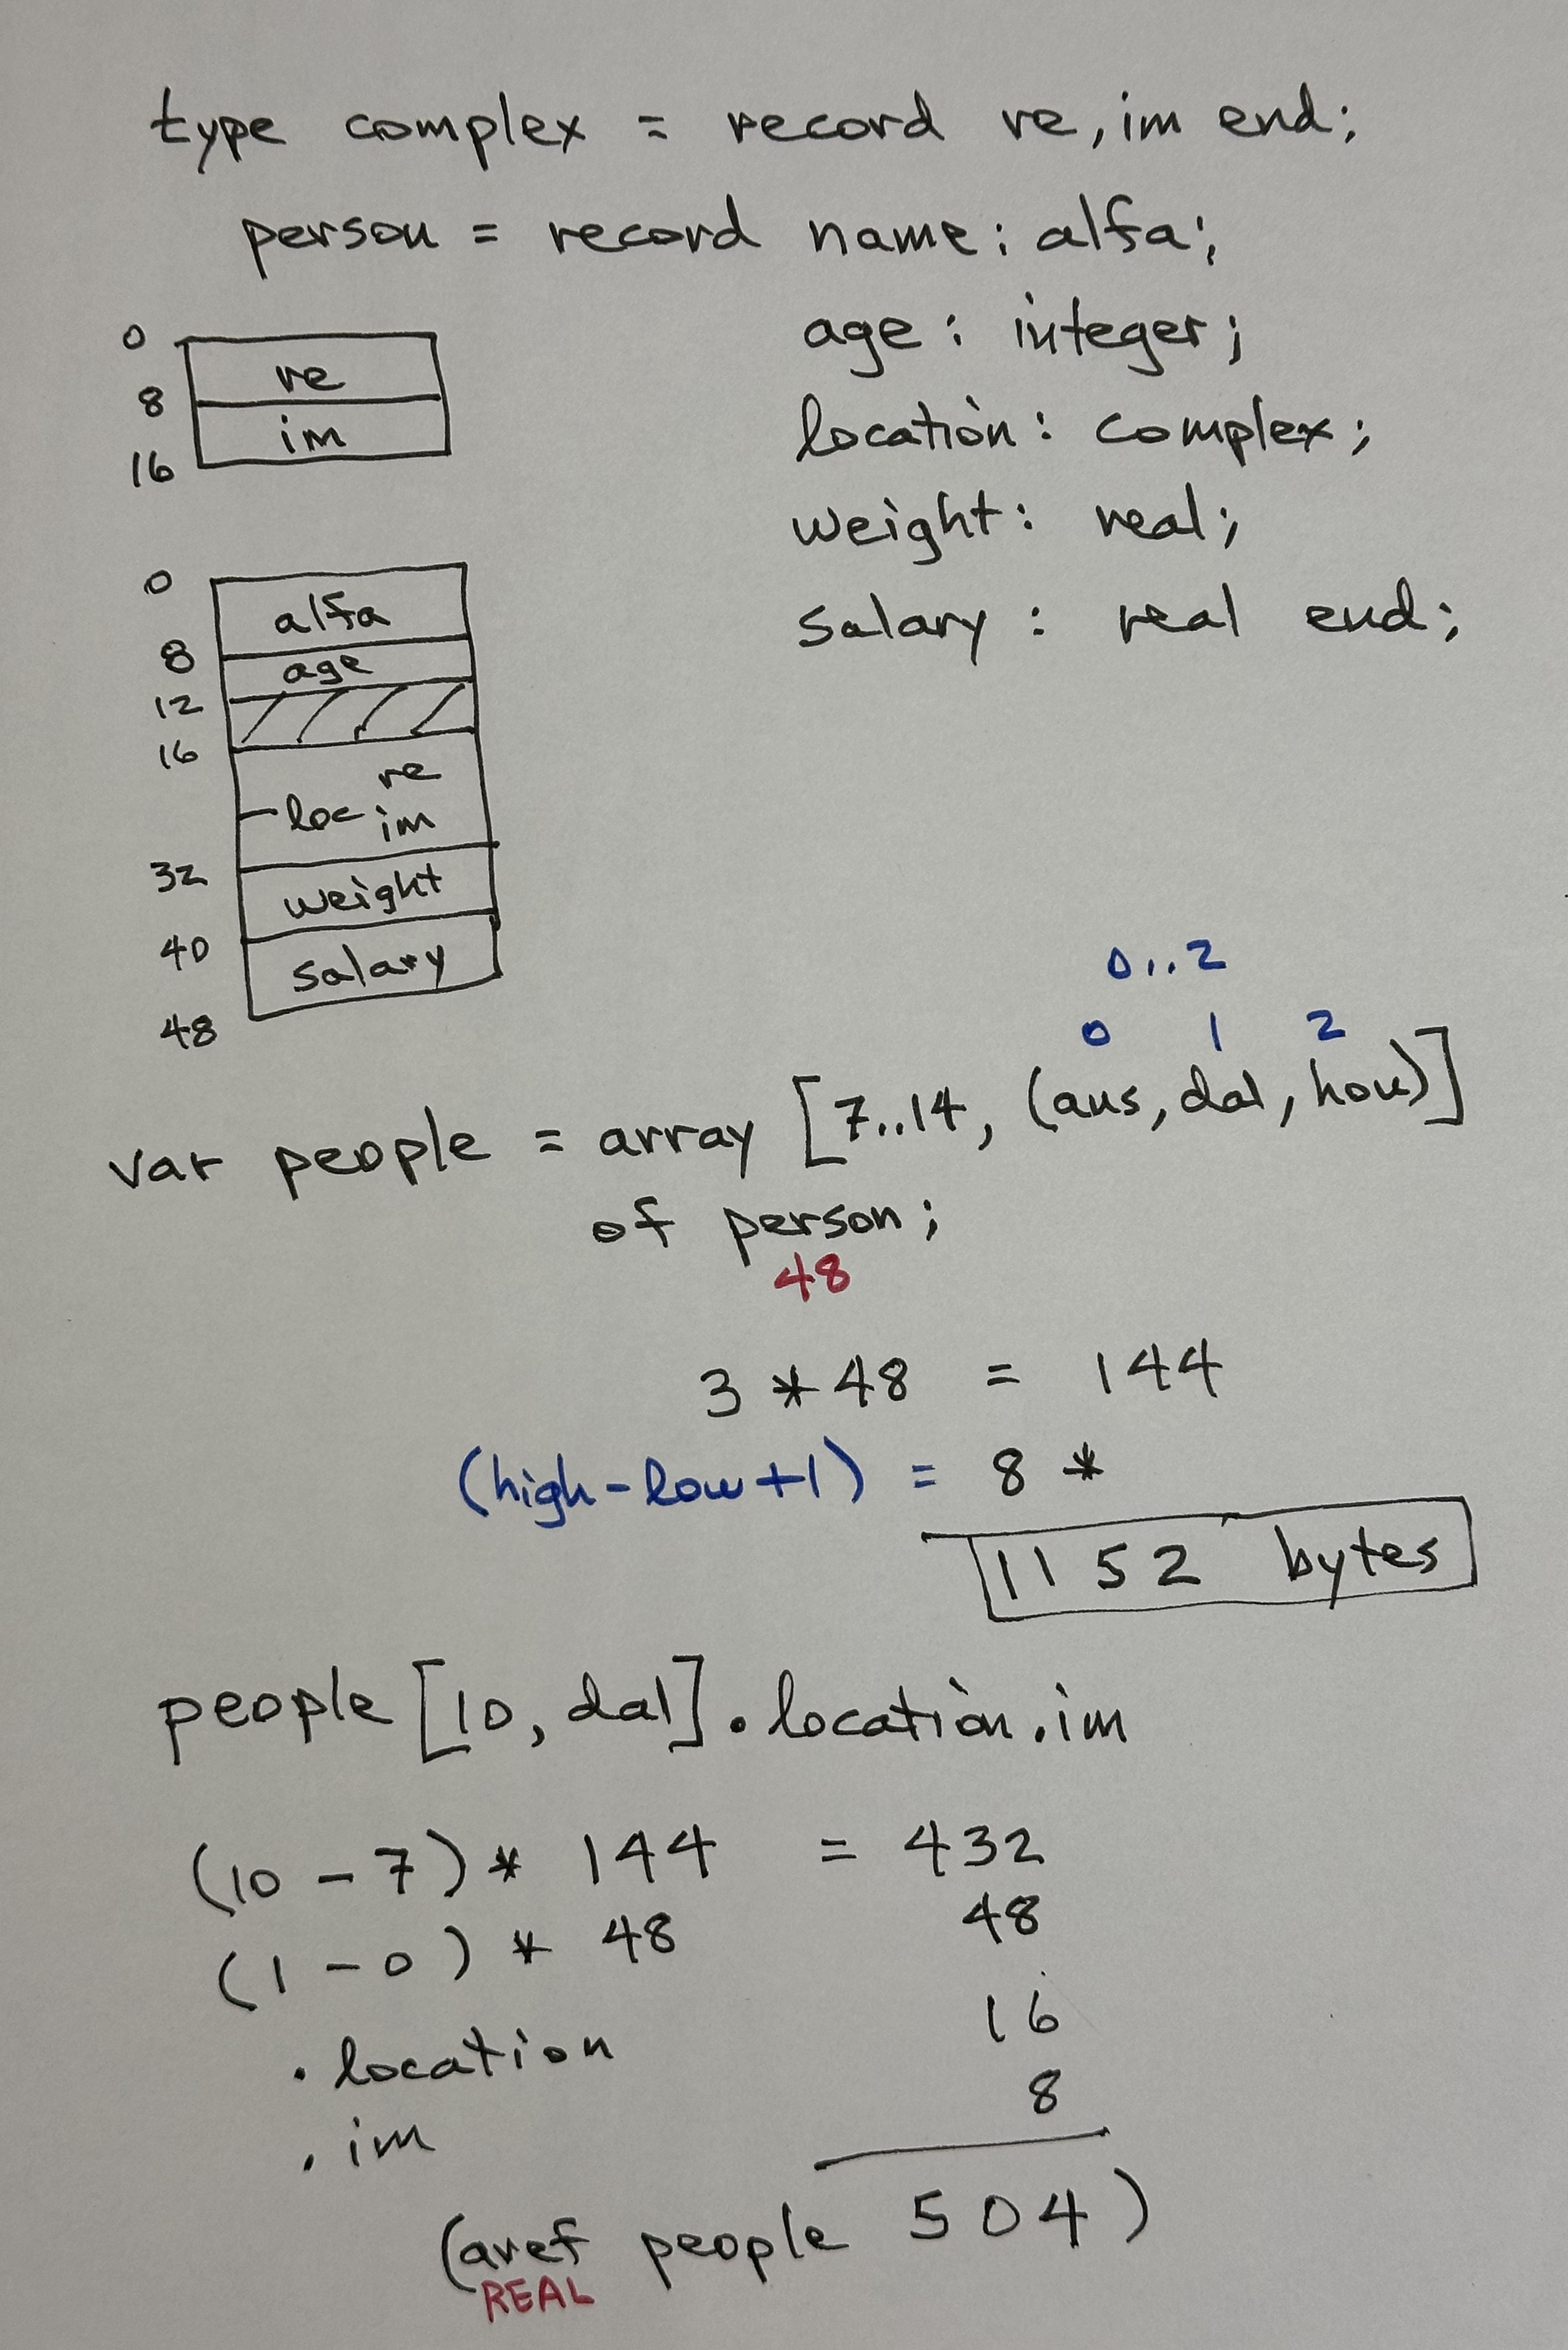 type complex = record re, im end;
person = record name: alfa;
age: integer;
location: complex;
weight: real;
salary: real end;
0
re
8
im
16
0
alfa
8
age
12
16
re
loc im
32
weight
40
salary
48
0..2
0 1 2
var people = array [7..14, (aus, dal, hou)]
of person;
48
3 * 48 = 144
(high-low+1) = 8 *
1152 bytes
people [10, dal].location.im
(10 - 7) * 144 = 432
(1 - 0) * 48 48
.location 16
.im 8
(aref people 504)
REAL